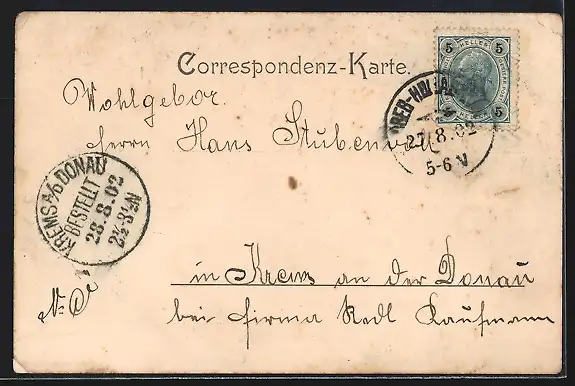 Correspondenz-Karte.
5 HELLER 5
5 5
27.8.02
5-6 V
Wohlgebor.
Herrn Hans
KREMS A/D DONAU
BESTELLT
28.8.02
2½-3½N
in Krems an der Donau
N.Ö
bei Firma Redl Kaufmann